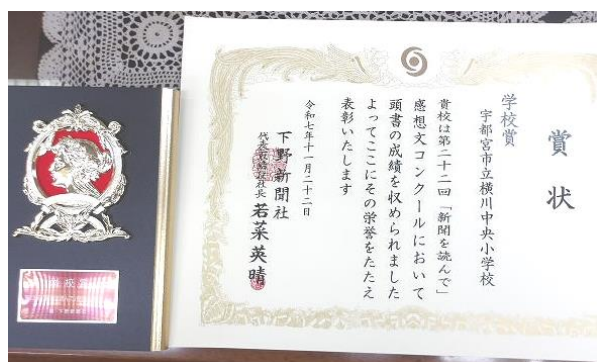 賞状
学校賞
宇都宮市立横川中央小学校
貴校は第二十二回「新聞を読んで」
感想文コンクールにおいて
頭書の成績を収められました
よってここにその栄誉をたたえ
表彰いたします
令和七年十一月二十二日
下野新聞社
代表取締役社長 若菜英晴